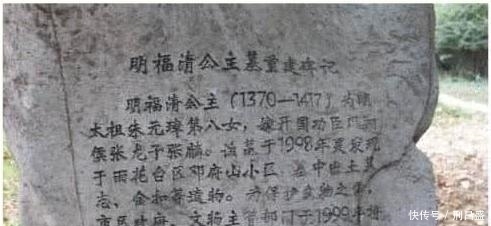 明福清公主墓重建碑记
明福清公主（1370—1417）为明
太祖朱元璋第八女，嫁开国功臣
侯张龙子张麟。该墓于1998年农发现
于雨花台区邓府山小区，墓中出土墓
志、金扣等遗物。为保护文物之
市民政府、文物主管部门于1999年将
快传号/荆吕盛